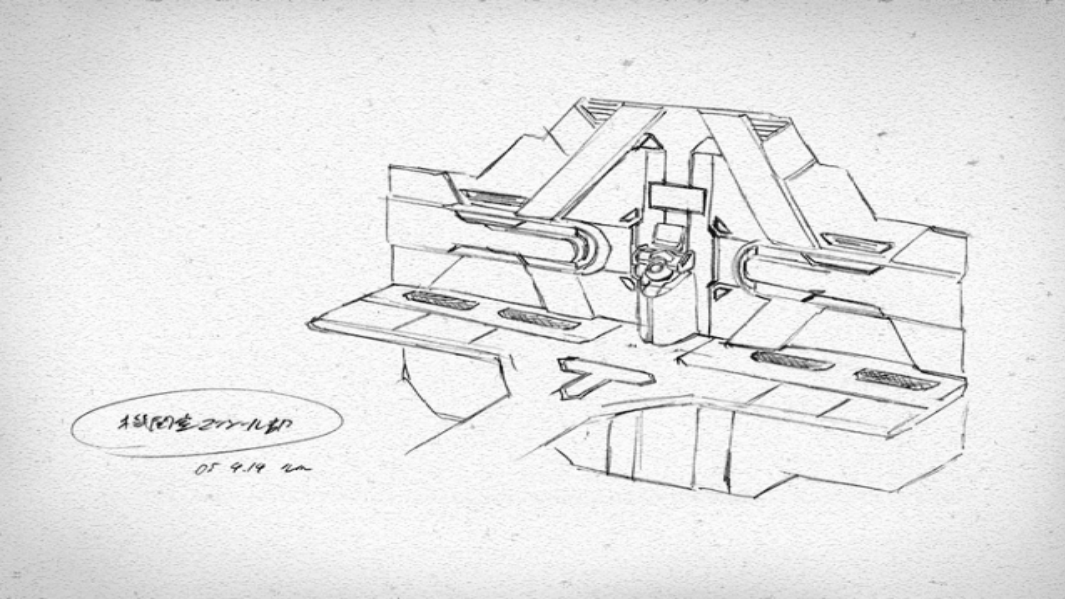 機関室コンソール部
05 9.19